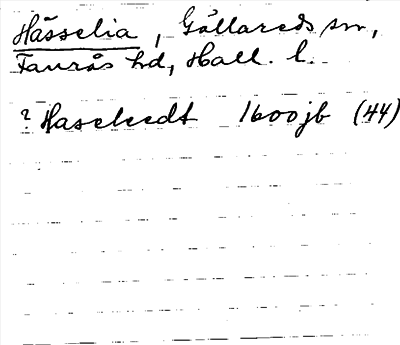 Hässelia, Gällareds sn,
Faurås hd, Hall. l.
? Haseleedt 1600 jb (44)